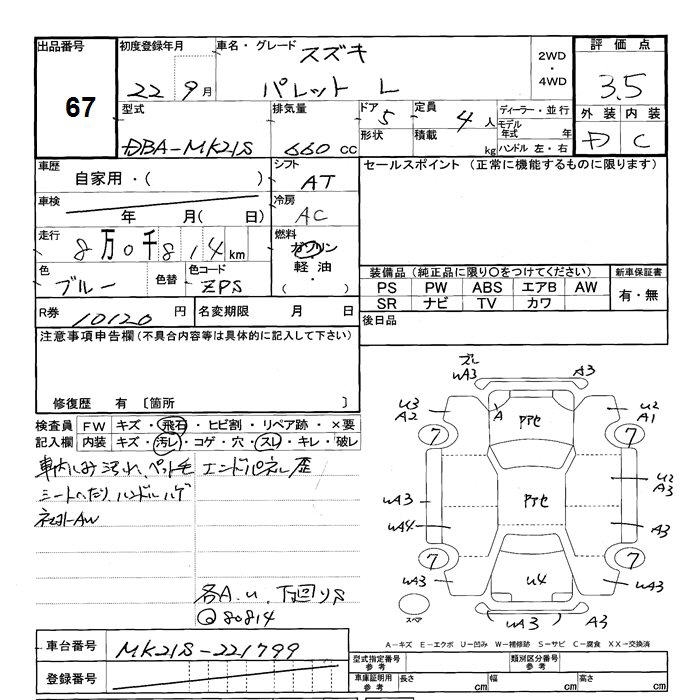 出品番号
67
初度登録年月
22 9月
車名・グレード スズキ
パレット L
2WD
・
4WD
評価点
3.5
外装 内装
D C
型式
DBA-MK21S
排気量
660 cc
ドア 5
形状
定員 4人
積載 kg
ディーラー・並行
モデル年式 年
ハンドル 左・右
車歴
自家用・( )
シフト
AT
車検
年 月( 日)
冷房
AC
走行
8万0千814km
燃料
ガソリン
軽油
・( )
色
ブルー
色替
色コード
ZPS
R券
10120円
名変期限 月 日
セールスポイント (正常に機能するものに限ります)
装備品(純正品に限り○をつけてください)
PS PW ABS エアB AW
SR ナビ TV カワ
新車保証書
有・無
後日品
注意事項申告欄(不具合内容等は具体的に記入して下さい)
修復歴 有 〔箇所 〕
検査員 FW キズ・飛石・ヒビ割・リペア跡・×要
記入欄 内装 キズ・汚レ・コゲ・穴・スレ・キレ・破レ
車内しみ汚れ、ペット毛
シートへたり、ハンドルハゲ
エンドパネル歪
各A.U、下回りS
80814
車台番号
MK21S-221799
登録番号
ズレ
WA3
A3
U3
A2
U2
A1
7
7
A
アアセ
アアセ
WA3
WA4
U2
A3
A3
7
7
WA3
U4
WA3
スペア
WA3
A3
A-キズ E-エクボ U-凹み W-補修跡 S-サビ C-腐食 XX-交換済
型式指定番号
参考
類別区分番号
参考
車庫証明用
参考
長さ cm
幅 cm
高さ cm